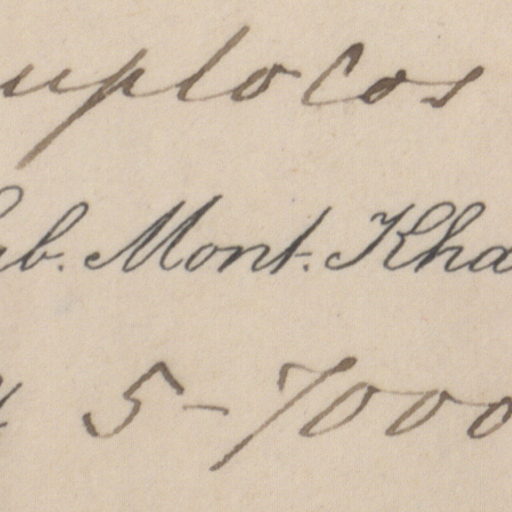 uplocos
ab. Mont. Kha
5-7000